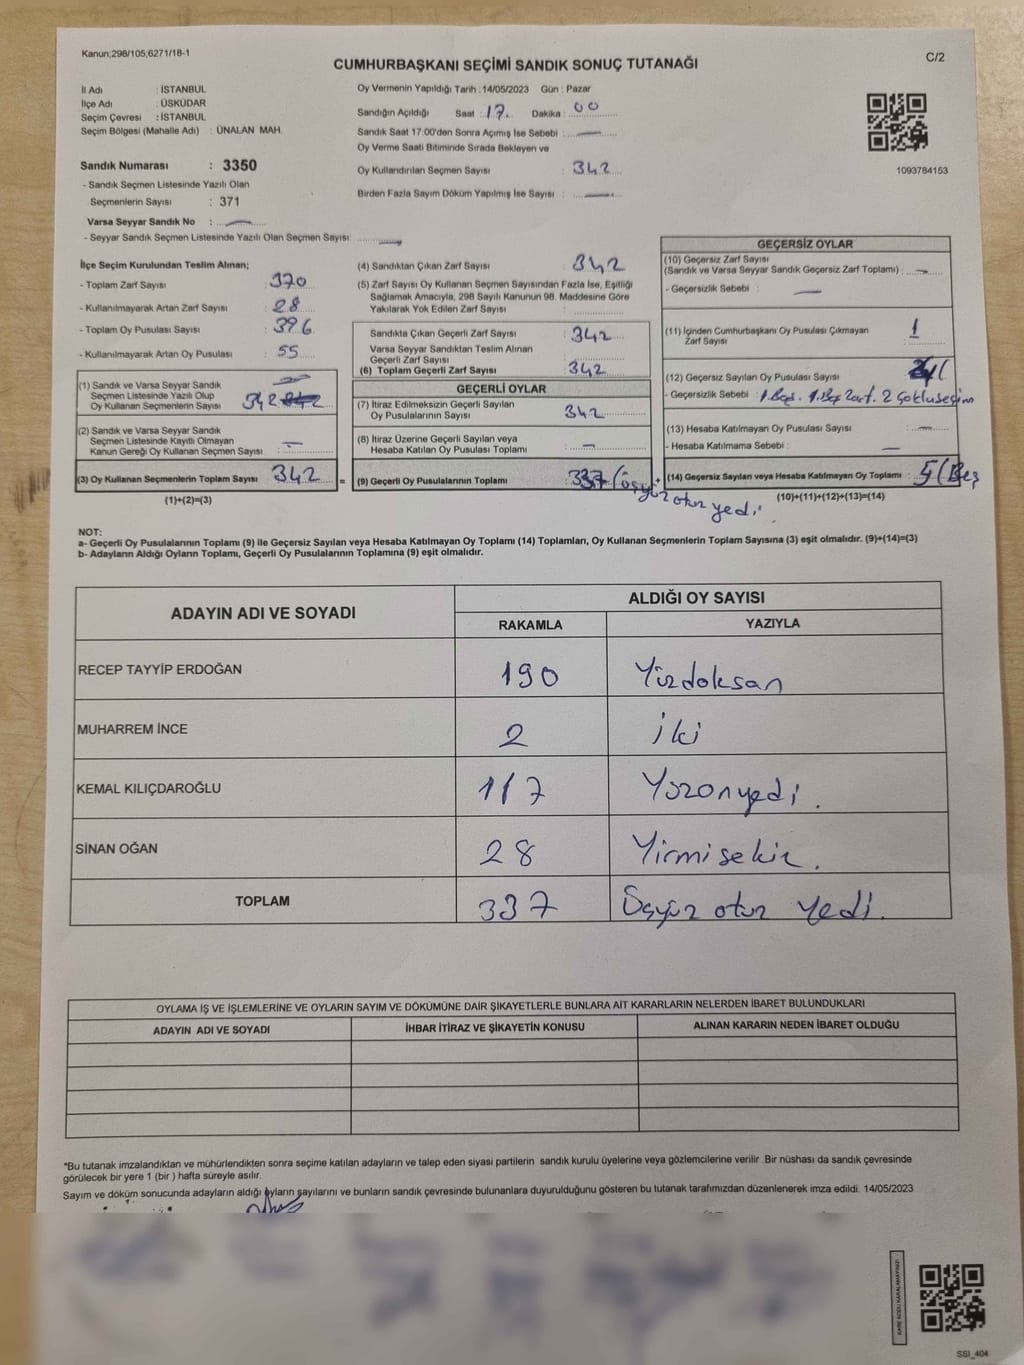 Kanun;298/105,6271/18-1
C/2
CUMHURBAŞKANI SEÇİMİ SANDIK SONUÇ TUTANAĞI
İl Adı : İSTANBUL
İlçe Adı : ÜSKÜDAR
Seçim Çevresi : İSTANBUL
Seçim Bölgesi (Mahalle Adı) : ÜNALAN MAH.
Sandık Numarası : 3350
- Sandık Seçmen Listesinde Yazılı Olan
Seçmenlerin Sayısı : 371
Varsa Seyyar Sandık No : —
- Seyyar Sandık Seçmen Listesinde Yazılı Olan Seçmen Sayısı: —
Oy Vermenin Yapıldığı Tarih : 14/05/2023 Gün : Pazar
Sandığın Açıldığı Saat : 17. Dakika : 00
Sandık Saat 17:00'den Sonra Açımış İse Sebebi : —
Oy Verme Saati Bitiminde Sırada Bekleyen ve
Oy Kullandırılan Seçmen Sayısı : 342
Birden Fazla Sayım Döküm Yapılmış İse Sayısı : —
1093784153
İlçe Seçim Kurulundan Teslim Alınan;
- Toplam Zarf Sayısı : 370
- Kullanılmayarak Artan Zarf Sayısı : 28
- Toplam Oy Pusulası Sayısı : 396
- Kullanılmayarak Artan Oy Pusulası : 55
(1) Sandık ve Varsa Seyyar Sandık
Seçmen Listesinde Yazılı Olup
Oy Kullanan Seçmenlerin Sayısı : 342
(2) Sandık ve Varsa Seyyar Sandık
Seçmen Listesinde Kayıtlı Olmayan
Kanun Gereği Oy Kullanan Seçmen Sayısı : —
(3) Oy Kullanan Seçmenlerin Toplam Sayısı : 342
(1)+(2)=(3)
(4) Sandıktan Çıkan Zarf Sayısı : 342
(5) Zarf Sayısı Oy Kullanan Seçmen Sayısından Fazla İse, Eşitliği
Sağlamak Amacıyla, 298 Sayılı Kanunun 98. Maddesine Göre
Yakılarak Yok Edilen Zarf Sayısı :
Sandıkta Çıkan Geçerli Zarf Sayısı : 342
Varsa Seyyar Sandıktan Teslim Alınan
Geçerli Zarf Sayısı :
(6) Toplam Geçerli Zarf Sayısı : 342
GEÇERLİ OYLAR
(7) İtiraz Edilmeksizin Geçerli Sayılan
Oy Pusulalarının Sayısı : 342
(8) İtiraz Üzerine Geçerli Sayılan veya
Hesaba Katılan Oy Pusulası Toplamı : —
= (9) Geçerli Oy Pusulalarının Toplamı : 337 (üçyüz otuz yedi.
GEÇERSİZ OYLAR
(10) Geçersiz Zarf Sayısı
(Sandık ve Varsa Seyyar Sandık Geçersiz Zarf Toplamı) : —
- Geçersizlik Sebebi : —
(11) İçinden Cumhurbaşkanı Oy Pusulası Çıkmayan
Zarf Sayısı : 1
(12) Geçersiz Sayılan Oy Pusulası Sayısı :
- Geçersizlik Sebebi : 1 Boş. 1. Boş Zarf. 2 çokluseçim
(13) Hesaba Katılmayan Oy Pusulası Sayısı : —
- Hesaba Katılmama Sebebi : —
+ (14) Geçersiz Sayılan veya Hesaba Katılmayan Oy Toplamı : 5 (Beş
(10)+(11)+(12)+(13)=(14)
NOT:
a- Geçerli Oy Pusulalarının Toplamı (9) ile Geçersiz Sayılan veya Hesaba Katılmayan Oy Toplamı (14) Toplamları, Oy Kullanan Seçmenlerin Toplam Sayısına (3) eşit olmalıdır. (9)+(14)=(3)
b- Adayların Aldığı Oyların Toplamı, Geçerli Oy Pusulalarının Toplamına (9) eşit olmalıdır.
ADAYIN ADI VE SOYADI
ALDIĞI OY SAYISI
RAKAMLA YAZIYLA
RECEP TAYYİP ERDOĞAN 190 Yüzdoksan
MUHARREM İNCE 2 iki
KEMAL KILIÇDAROĞLU 117 Yüzonyedi.
SİNAN OĞAN 28 Yirmisekiz.
TOPLAM 337 Üçyüz otuz yedi.
OYLAMA İŞ VE İŞLEMLERİNE VE OYLARIN SAYIM VE DÖKÜMÜNE DAİR ŞİKAYETLERLE BUNLARA AİT KARARLARIN NELERDEN İBARET BULUNDUKLARI
ADAYIN ADI VE SOYADI İHBAR İTİRAZ VE ŞİKAYETİN KONUSU ALINAN KARARIN NEDEN İBARET OLDUĞU
*Bu tutanak imzalandıktan ve mühürlendikten sonra seçime katılan adayların ve talep eden siyasi partilerin sandık kurulu üyelerine veya gözlemcilerine verilir .Bir nüshası da sandık çevresinde
görülecek bir yere 1 (bir ) hafta süreyle asılır.
Sayım ve döküm sonucunda adayların aldığı oyların sayılarını ve bunların sandık çevresinde bulunanlara duyurulduğunu gösteren bu tutanak tarafımızdan düzenlenerek imza edildi. 14/05/2023
KARE KODU KARALAMAYINIZ!
SSI_404